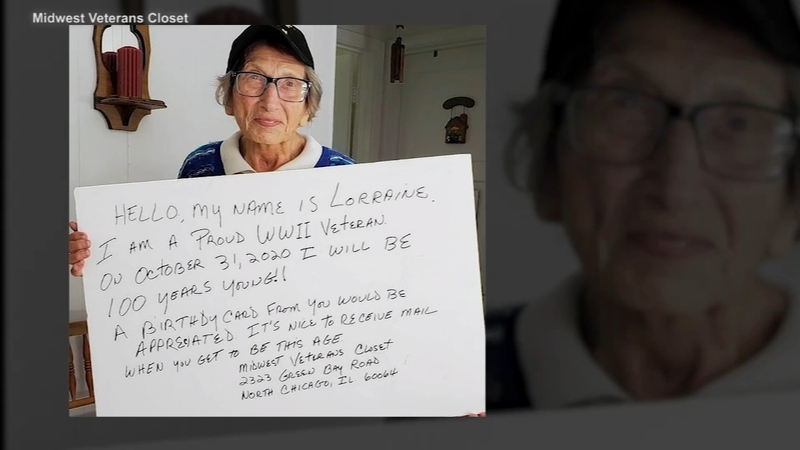 Midwest Veterans Closet
HELLO, MY NAME IS LORRAINE.
I AM A PROUD WWII VETERAN.
ON OCTOBER 31, 2020 I WILL BE
100 YEARS YOUNG!!
A BIRTHDY CARD FROM YOU WOULD BE
APPRECIATED IT'S NICE TO RECEIVE MAIL
WHEN YOU GET TO BE THIS AGE
MIDWEST VETERANS CLOSET
2323 GREEN BAY ROAD
NORTH CHICAGO, IL 60064